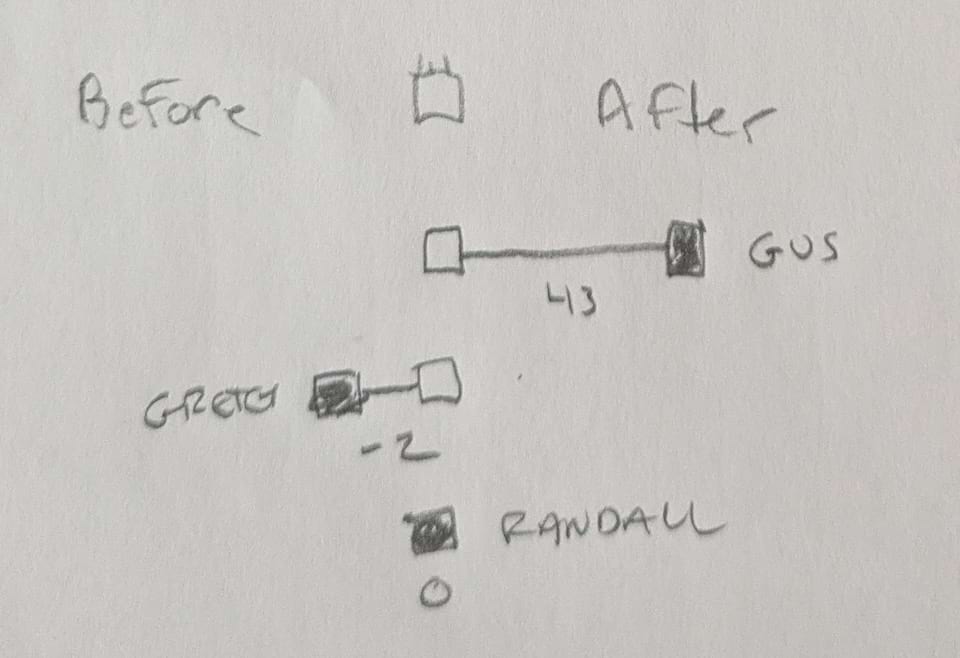 Before After
GUS
43
GRETCH
-2
RANDALL
0